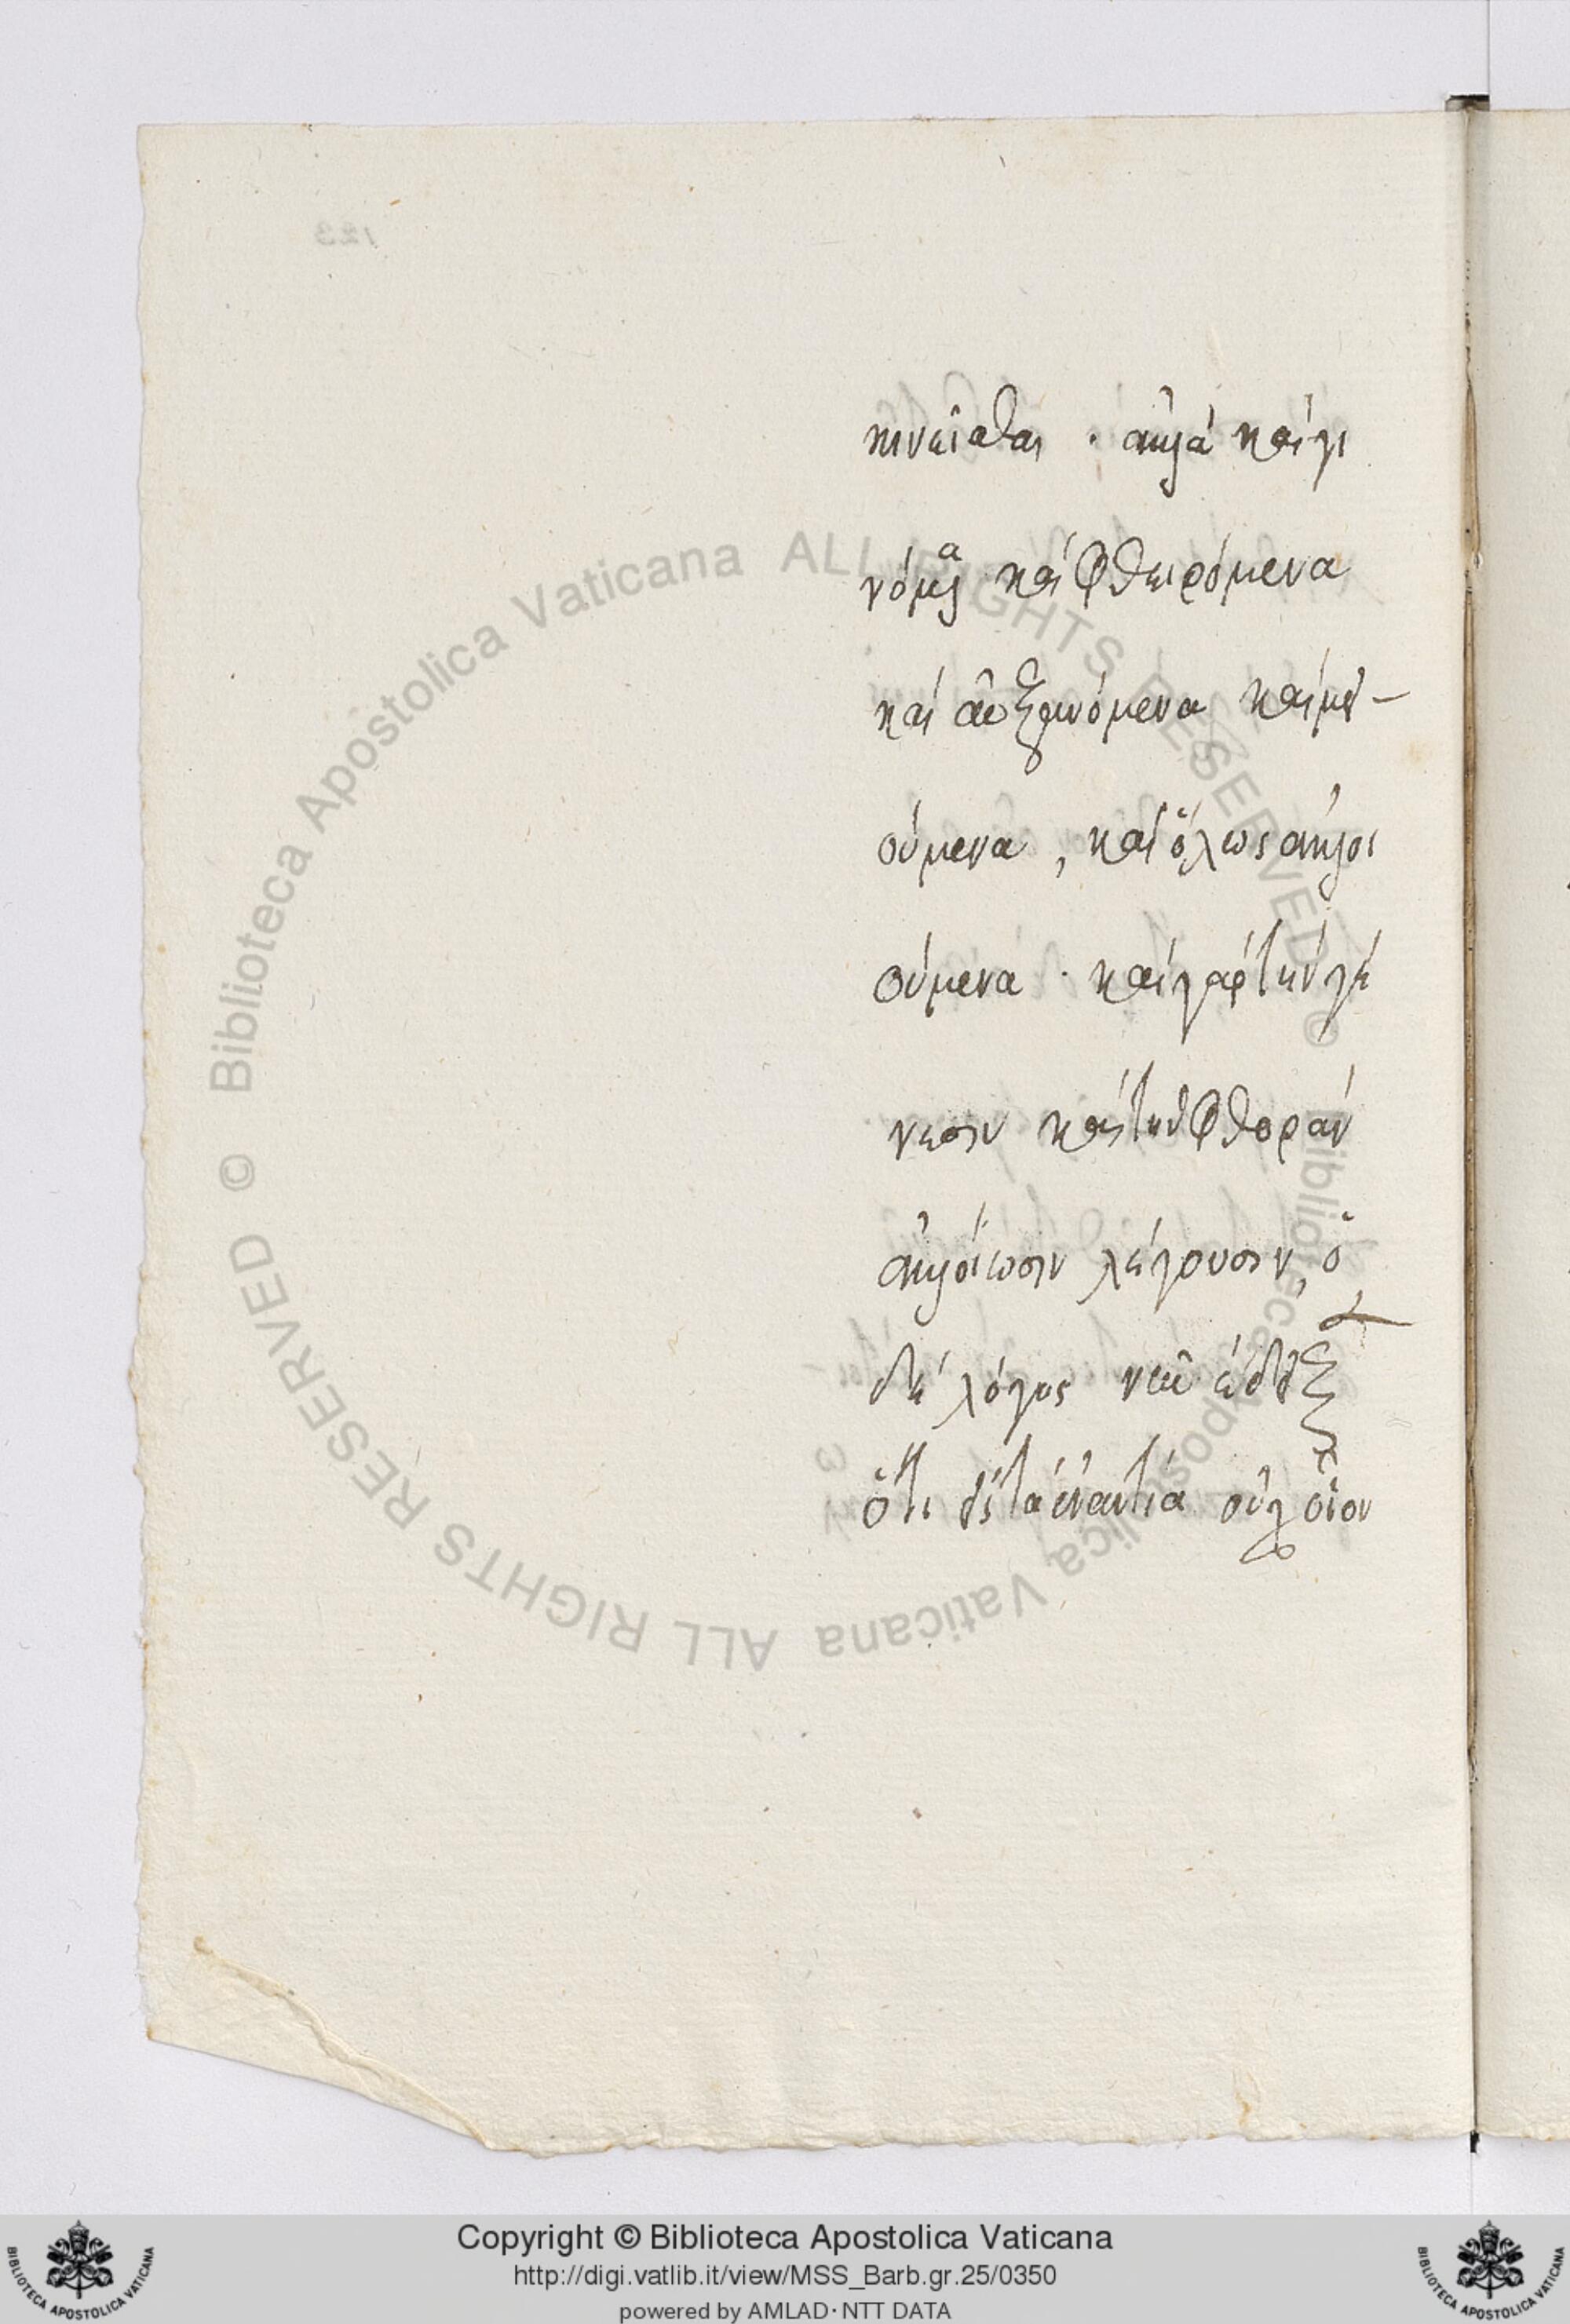 κινεῖσθαι · ἀλλὰ καὶ γι
νόμενα καὶ φθειρόμενα
καὶ αὐξανόμενα καὶ μει-
ούμενα, καὶ ὅλως ἀλλοι
ούμενα · καὶ γὰρ τὴν γέ
νεσιν καὶ τὴν φθορὰν
ἀλλοίωσιν λέγουσιν, ὁ
δὲ λόγος
ὅτι εἰς τὰ ἐναντία οὐχ οἷον
© Biblioteca Apostolica Vaticana ALL RIGHTS RESERVED © Biblioteca Apostolica Vaticana ALL RIGHTS RESERVED
Copyright © Biblioteca Apostolica Vaticana
http://digi.vatlib.it/view/MSS_Barb.gr.25/0350
powered by AMLAD · NTT DATA
BIBLIOTECA APOSTOLICA VATICANA
BIBLIOTECA APOSTOLICA VATICANA